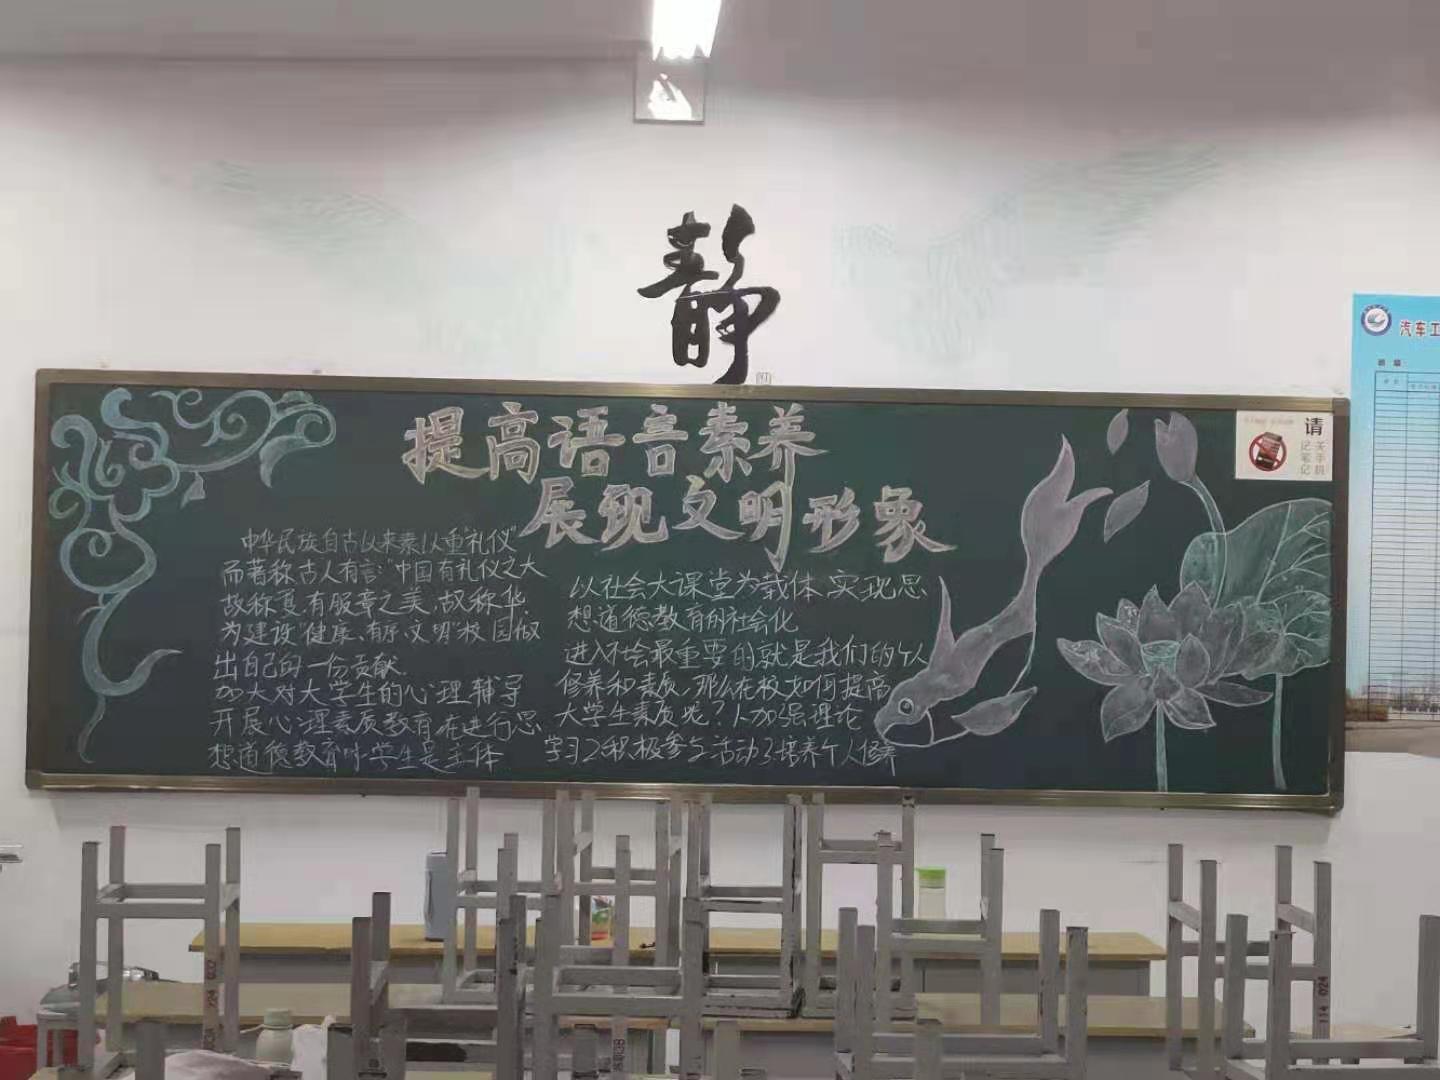 静
提高语音素养
展现文明形象
中华民族自古以来素以重礼仪"
而著称古人有言:"中国有礼仪之大
故称夏,有服章之美,故称华.
为建设"健康、有序、文明"校园做
出自己的一份贡献.
加大对大学生的心理辅导
开展心理素质教育在进行思
想道德教育时学生是主体
以社会大课堂为载体 实现思
想道德教育的社会化
进入社会最重要的就是我们的个人
修养和素质,那么在校如何提高
大学生素质呢?1.加强理论
学习2积极参与活动3培养个人修养
请
关手机
记笔记
汽车工